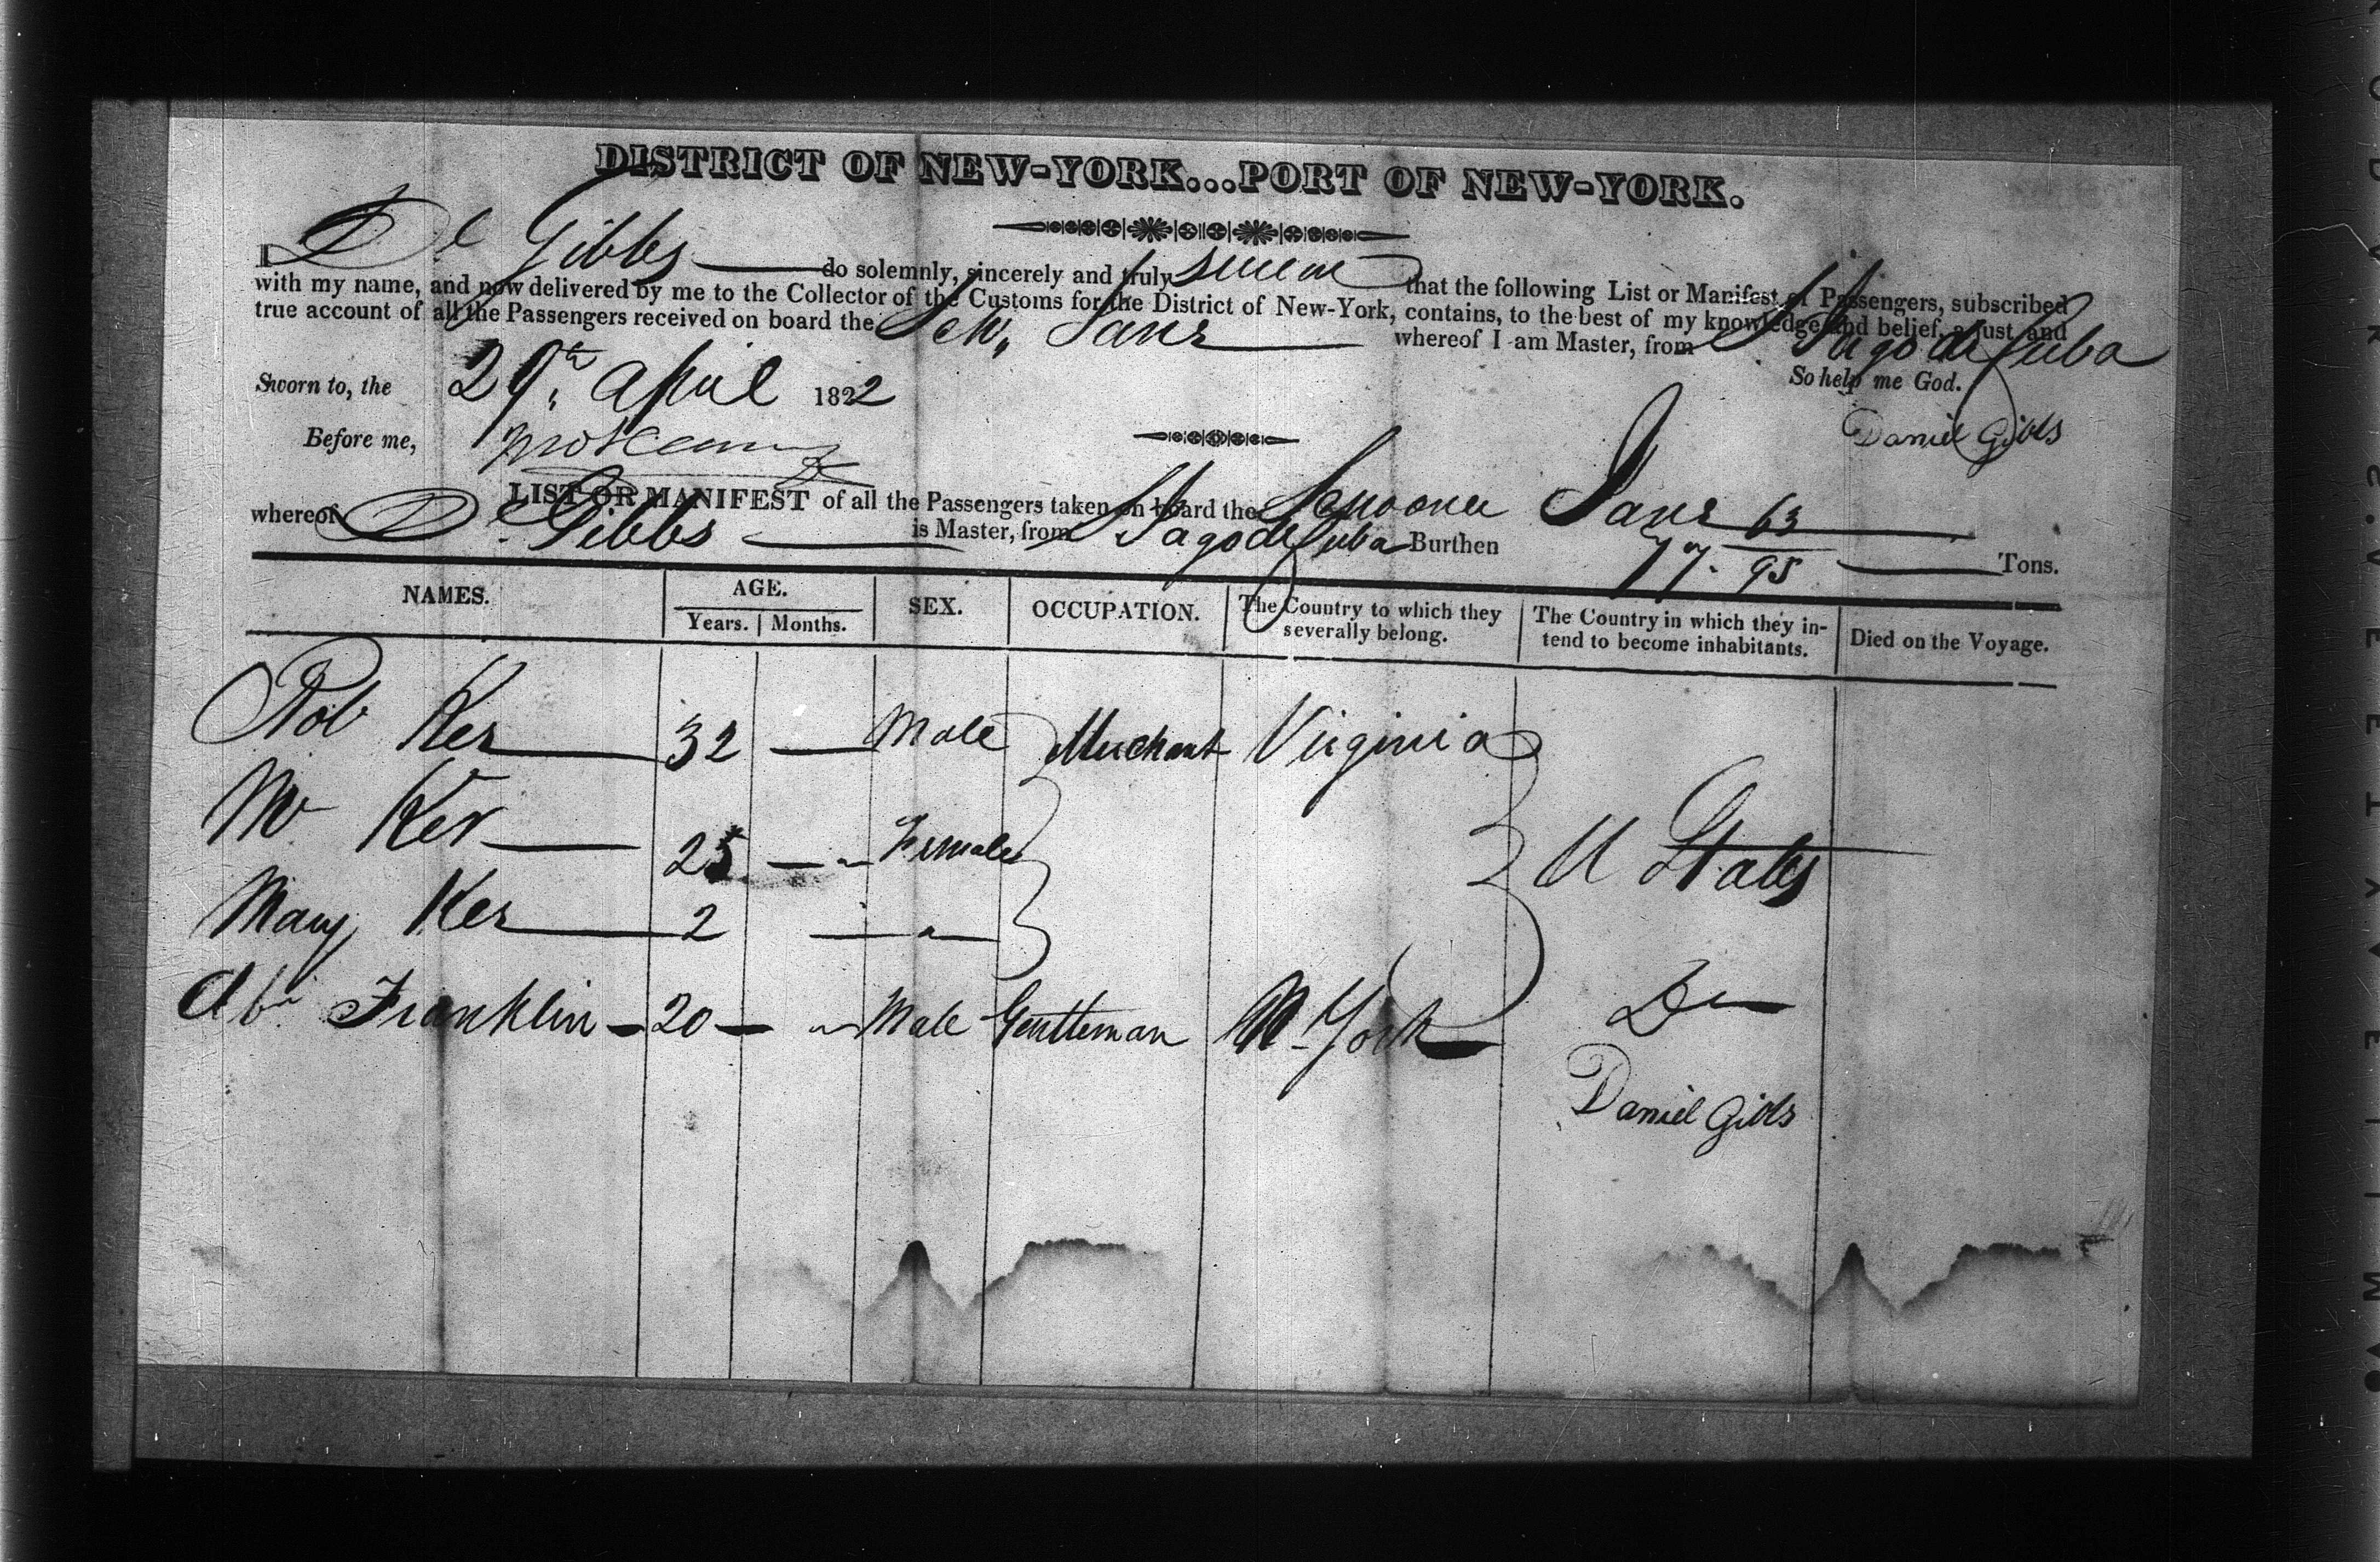 DISTRICT OF NEW-YORK...PORT OF NEW-YORK.
I Dl Gibbs do solemnly, sincerely and truly swear that the following List or Manifest of Passengers, subscribed
with my name, and now delivered by me to the Collector of the Customs for the District of New-York, contains, to the best of my knowledge and belief, a just and
true account of all the Passengers received on board the Schr Jane whereof I am Master, from St Jago de Cuba
Sworn to, the 29th April 1822 So help me God.
Before me, Daniel Gibbs
LIST OR MANIFEST of all the Passengers taken on board the Schooner Jane
whereof Dl Gibbs is Master, from St Jago de Cuba Burthen 77 63/95 Tons.
NAMES. AGE. SEX. OCCUPATION. The Country to which they severally belong. The Country in which they in-tend to become inhabitants. Died on the Voyage.
Years. Months.
Rob Ker 32 Male Merchant Virginia
Mrs Ker 25 Female U States
Mary Ker 2 "
Abm Franklin 20 Male Gentleman N-York Do
Daniel Gibbs